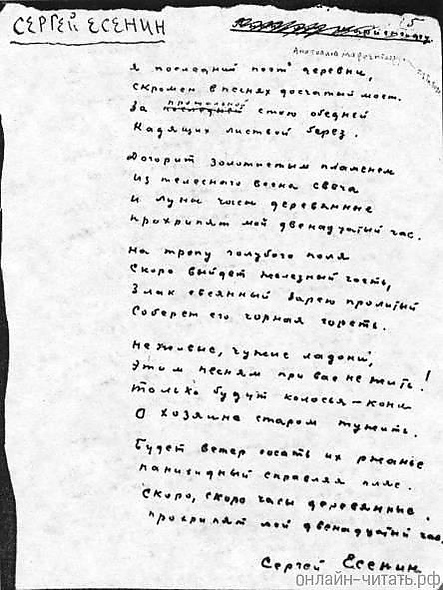 СЕРГЕЙ ЕСЕНИН
5
Мариенгофу
Анатолию Мариенгофу
Я последний поэт деревни,
Скромен в песнях досчатый мост.
прощальной
За последней стою обедней
Кадящих листвой берез.
Догорит золотистым пламенем
Из телесного воска свеча
И луны часы деревянные
Прохрипят мой двенадцатый час.
На тропу голубого поля
Скоро выйдет железный гость,
Злак овсянный зарею пролитый
Соберет его чорная горсть.
Не живые, чужие ладони,
Этим песням при вас не жить!
Только будут колосья-кони
О хозяине старом тужить.
Будет ветер сосать их ржанье
Панихидный справляя пляс.
Скоро, скоро часы деревянные
Прохрипят мой двенадцатый час
Сергей Есенин
онлайн-читать.рф